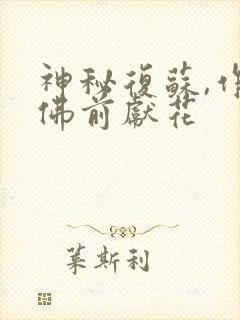 神秘復蘇,作
佛前獻花
葉斯利